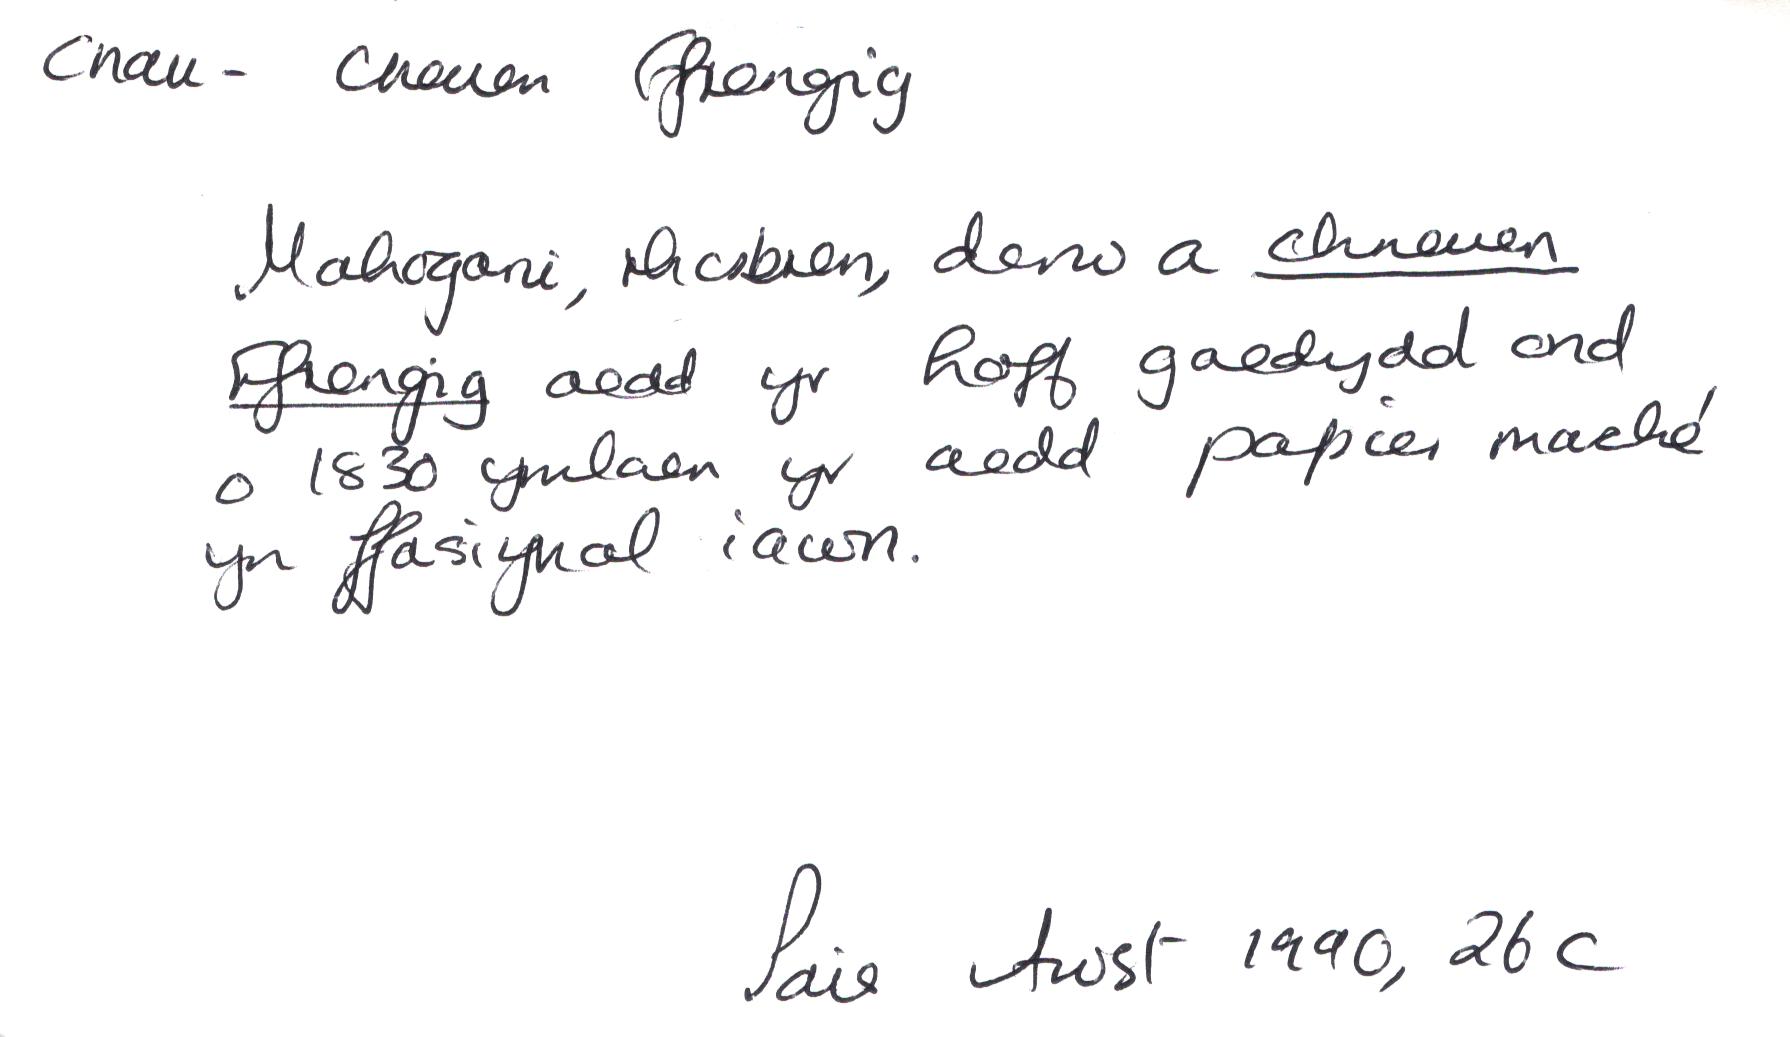 Cnau - Cneuen Ffrengig
Mahogani, rhosbren, derw a chneuen
Ffrengig oedd yr hoff goedydd ond
o 1830 ymlaen yr oedd papier maché
yn ffasiynol iawn.
Pais Awst 1990, 26 C